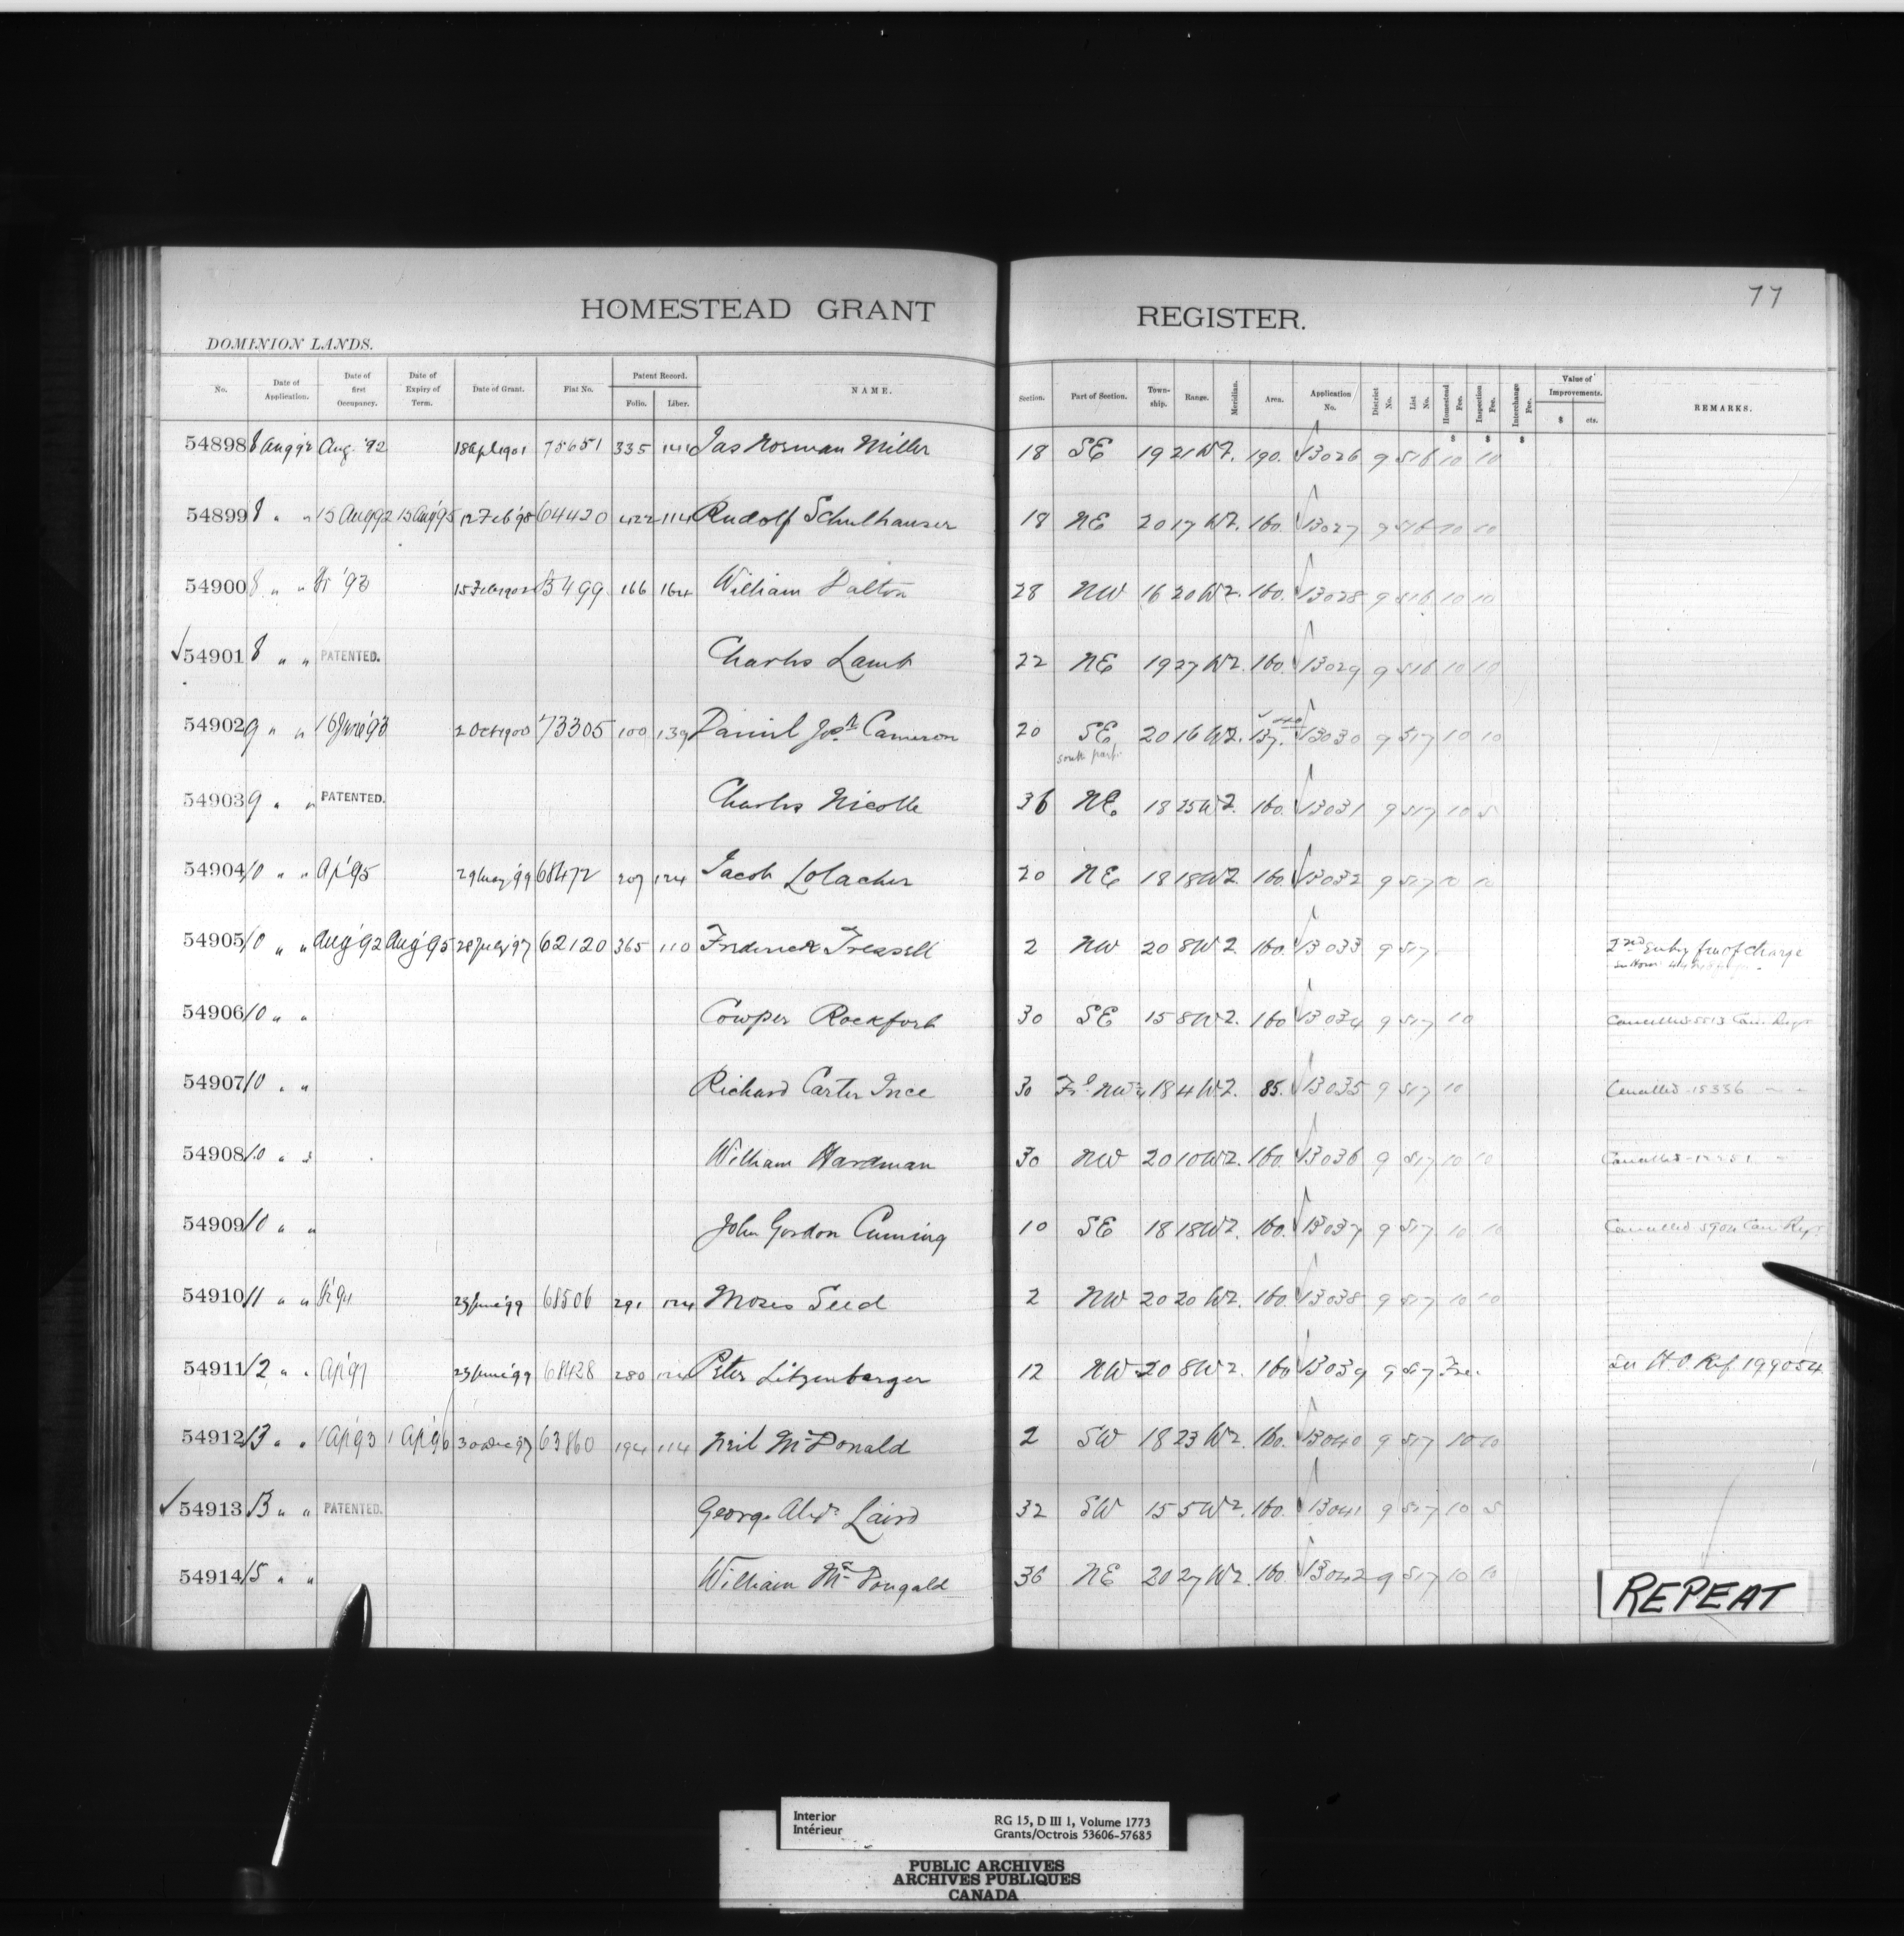 77
HOMESTEAD GRANT REGISTER.
DOMINION LANDS.
No. Date of Application. Date of first Occupancy. Date of Expiry of Term. Date of Grant. Fiat No. Patent Record. Folio. Liber. NAME. Section. Part of Section. Town-ship. Range. Meridian. Area. Application No. District No. List No. Homestead Fee. Inspection Fee. Interchange Fee. Value of Improvements. $ cts. REMARKS.
$ $ $
54898 8 Aug 92 Aug. '92 18 Apl 1901 75651 335 141 Jas Norman Miller 18 SE 19 21 W2. 190. 13026 9 516 10 10
54899 8 " " 15 Aug 92 15 Aug '95 12 Feb '98 64420 422 114 Rudolf Schulhauser 18 NE 20 17 W2. 160. 13027 9 516 10 10
54900 8 " " '93 15 Feb 1902 166 164 William Dalton 28 NW 16 20 W2. 160. 13028 9 516 10 10
54901 8 " " PATENTED. Charles Lamb 22 NE 19 27 W2. 160. 13029 9 516 10 10
54902 9 " " 16 June '93 2 Oct 1900 73305 100 139 Daniel Josh Cameron 20 SE 20 16 W2. 137. 13030 9 517 10 10
south part.
54903 9 " " PATENTED. Charles Nicolle 36 NE 18 25 W2. 160. 13031 9 517 10 5
54904 10 " " Ap '95 29 May '99 68472 207 124 Jacob Lolacher 20 NE 18 18 W2. 160. 13032 9 517 10 10
54905 10 " " Aug '92 Aug '95 28 July '97 62120 365 110 Frederick Treasell 2 NW 20 8 W2. 160. 13033 9 517 2nd Entry free of charge
54906 10 " " Cowper Rockfort 30 SE 15 8 W2. 160 13034 9 517 10 Cancelled 5513 Can Regr
54907 10 " " Richard Carter Ince 30 Frl NW¼ 18 4 W2. 85. 13035 9 517 10 Cancelled 15336 " "
54908 10 " " William Hardman 30 NW 20 10 W2. 160. 13036 9 517 10 10 Cancelled
54909 10 " " John Gordon Cuming 10 SE 18 18 W2. 160. 13037 9 517 10 10 Cancelled 5904 Can Regr
54910 11 " " 23 June '99 68506 291 124 Moses Seed 2 NW 20 20 W2. 160. 13038 9 517 10 10
54911 12 " " Ap '97 23 June '99 68428 280 124 Peter Litzenberger 12 NW 20 8 W2. 160 13039 9 517 Free. See H.O. Ref. 199054
54912 13 " " 1 Ap '93 1 Ap '96 30 Dec 97 63860 194 114 Neil McDonald 2 SW 18 23 W2. 160. 13040 9 517 10 10
54913 13 " " PATENTED. George Alexr Laird 32 SW 15 5 W2. 160. 13041 9 517 10 5
54914 15 " " William McDougald 36 NE 20 27 W2. 160. 13042 9 517 10 10
REPEAT
Interior RG 15, D III 1, Volume 1773
Intérieur Grants/Octrois 53606-57685
PUBLIC ARCHIVES
ARCHIVES PUBLIQUES
CANADA